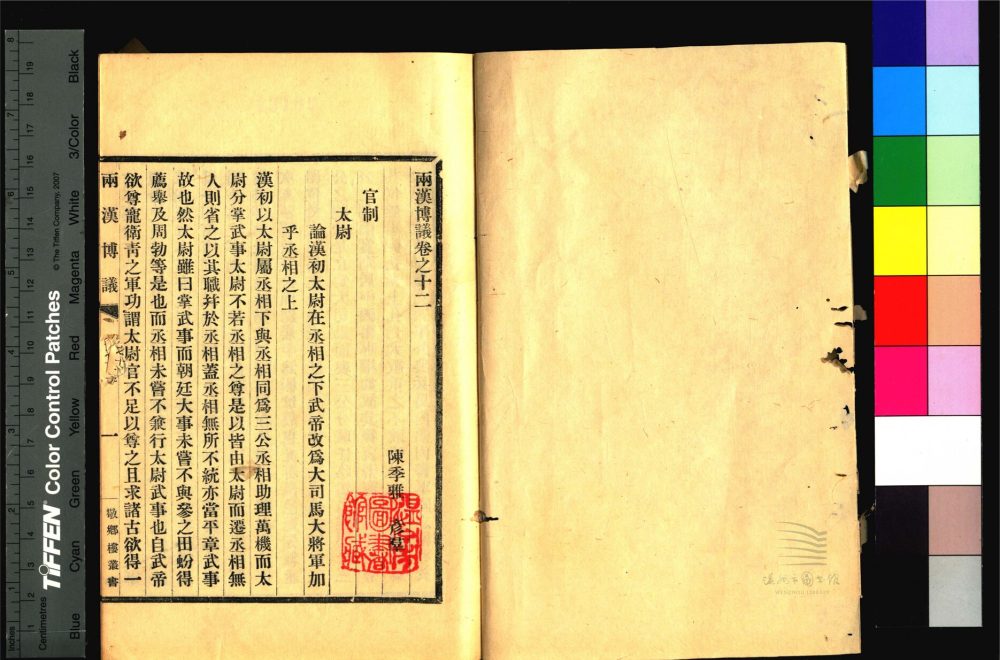 兩漢博議卷之十二
陳季雅 彥羣
官制
太尉
論漢初太尉在丞相之下武帝改爲大司馬大將軍加
乎丞相之上
漢初以太尉屬丞相下與丞相同爲三公丞相助理萬機而太
尉分掌武事太尉不若丞相之尊是以皆由太尉而遷丞相無
人則省之以其職幷於丞相蓋丞相無所不統亦當平章武事
故也然太尉雖曰掌武事而朝廷大事未嘗不與參之田蚡得
薦舉及周勃等是也而丞相未嘗不兼行太尉武事也自武帝
欲尊寵衛靑之軍功謂太尉官不足以尊之且求諸古欲得一
兩漢博議
一
敬鄉樓叢書
溫州圖書館藏
溫州市圖書館
WENZHOU LIBRARY
Inches
Centimetres
TIFFEN Color Control Patches
© The Tiffen Company, 2007
Blue
Cyan
Green
Yellow
Red
Magenta
White
3/Color
Black